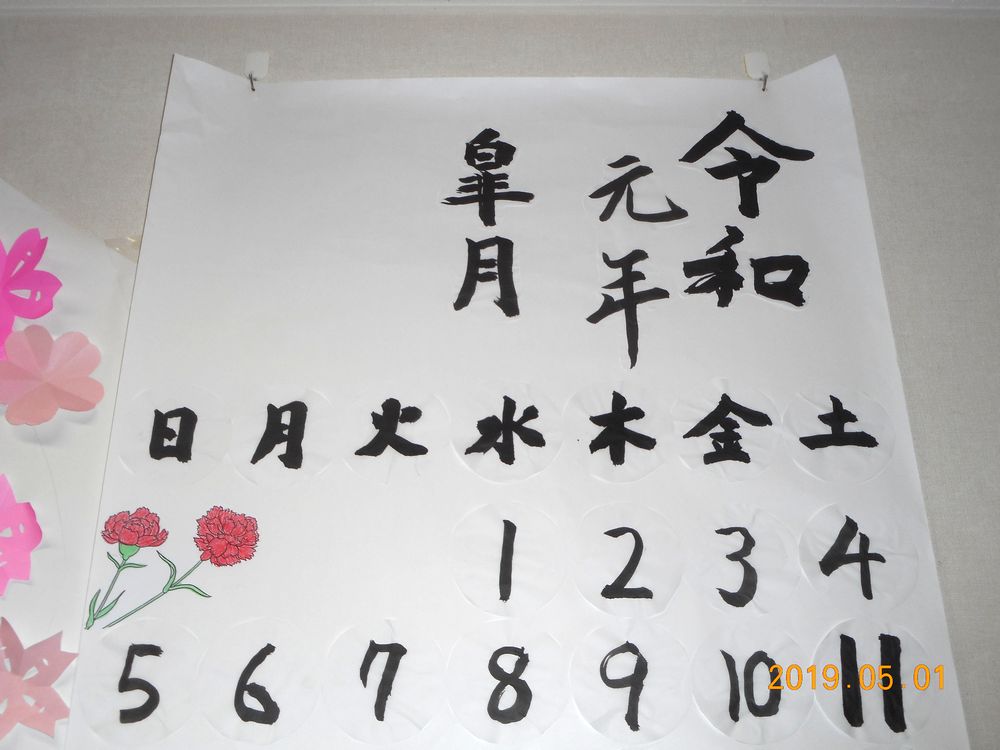 令和
元年
皐月
日 月 火 水 木 金 土
1 2 3 4
5 6 7 8 9 10 11
2019.05.01